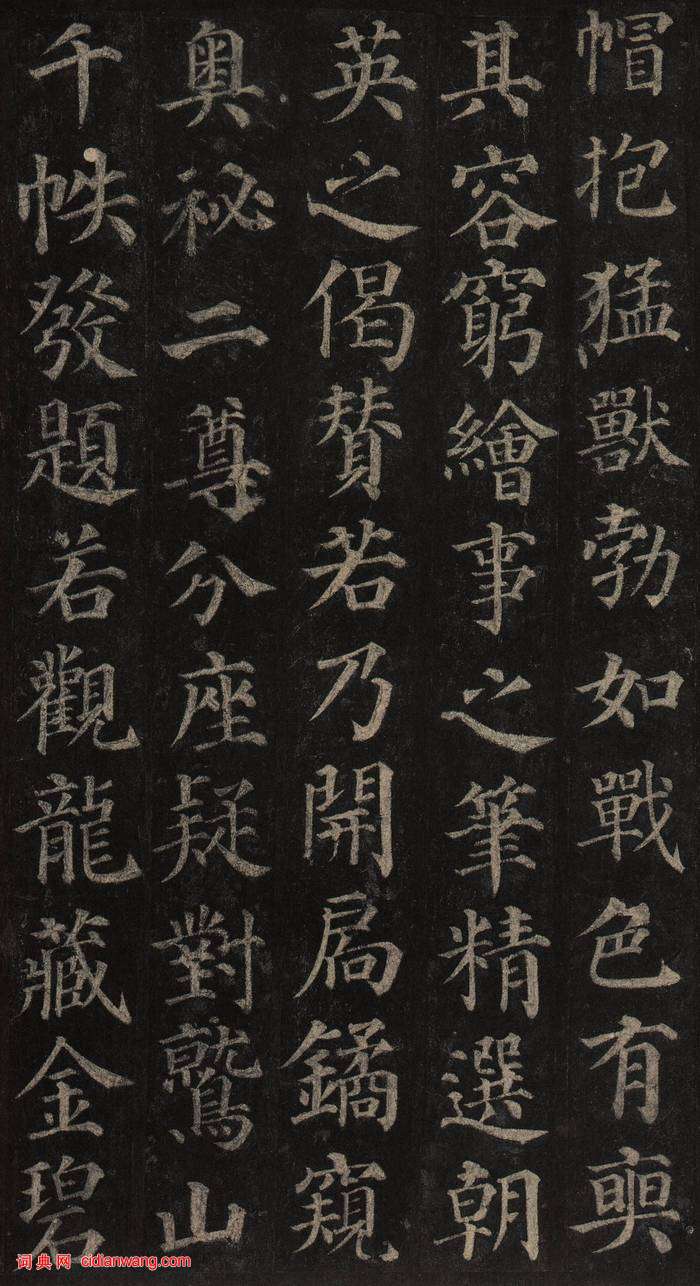 帽抱猛獸勃如戰色有奭
其容窮繪事之筆精選朝
英之偈賛若乃開扃鐍窺
奥祕二尊分座疑對鷲山
千帙發題若觀龍藏金碧
词典网 cidianwang.com